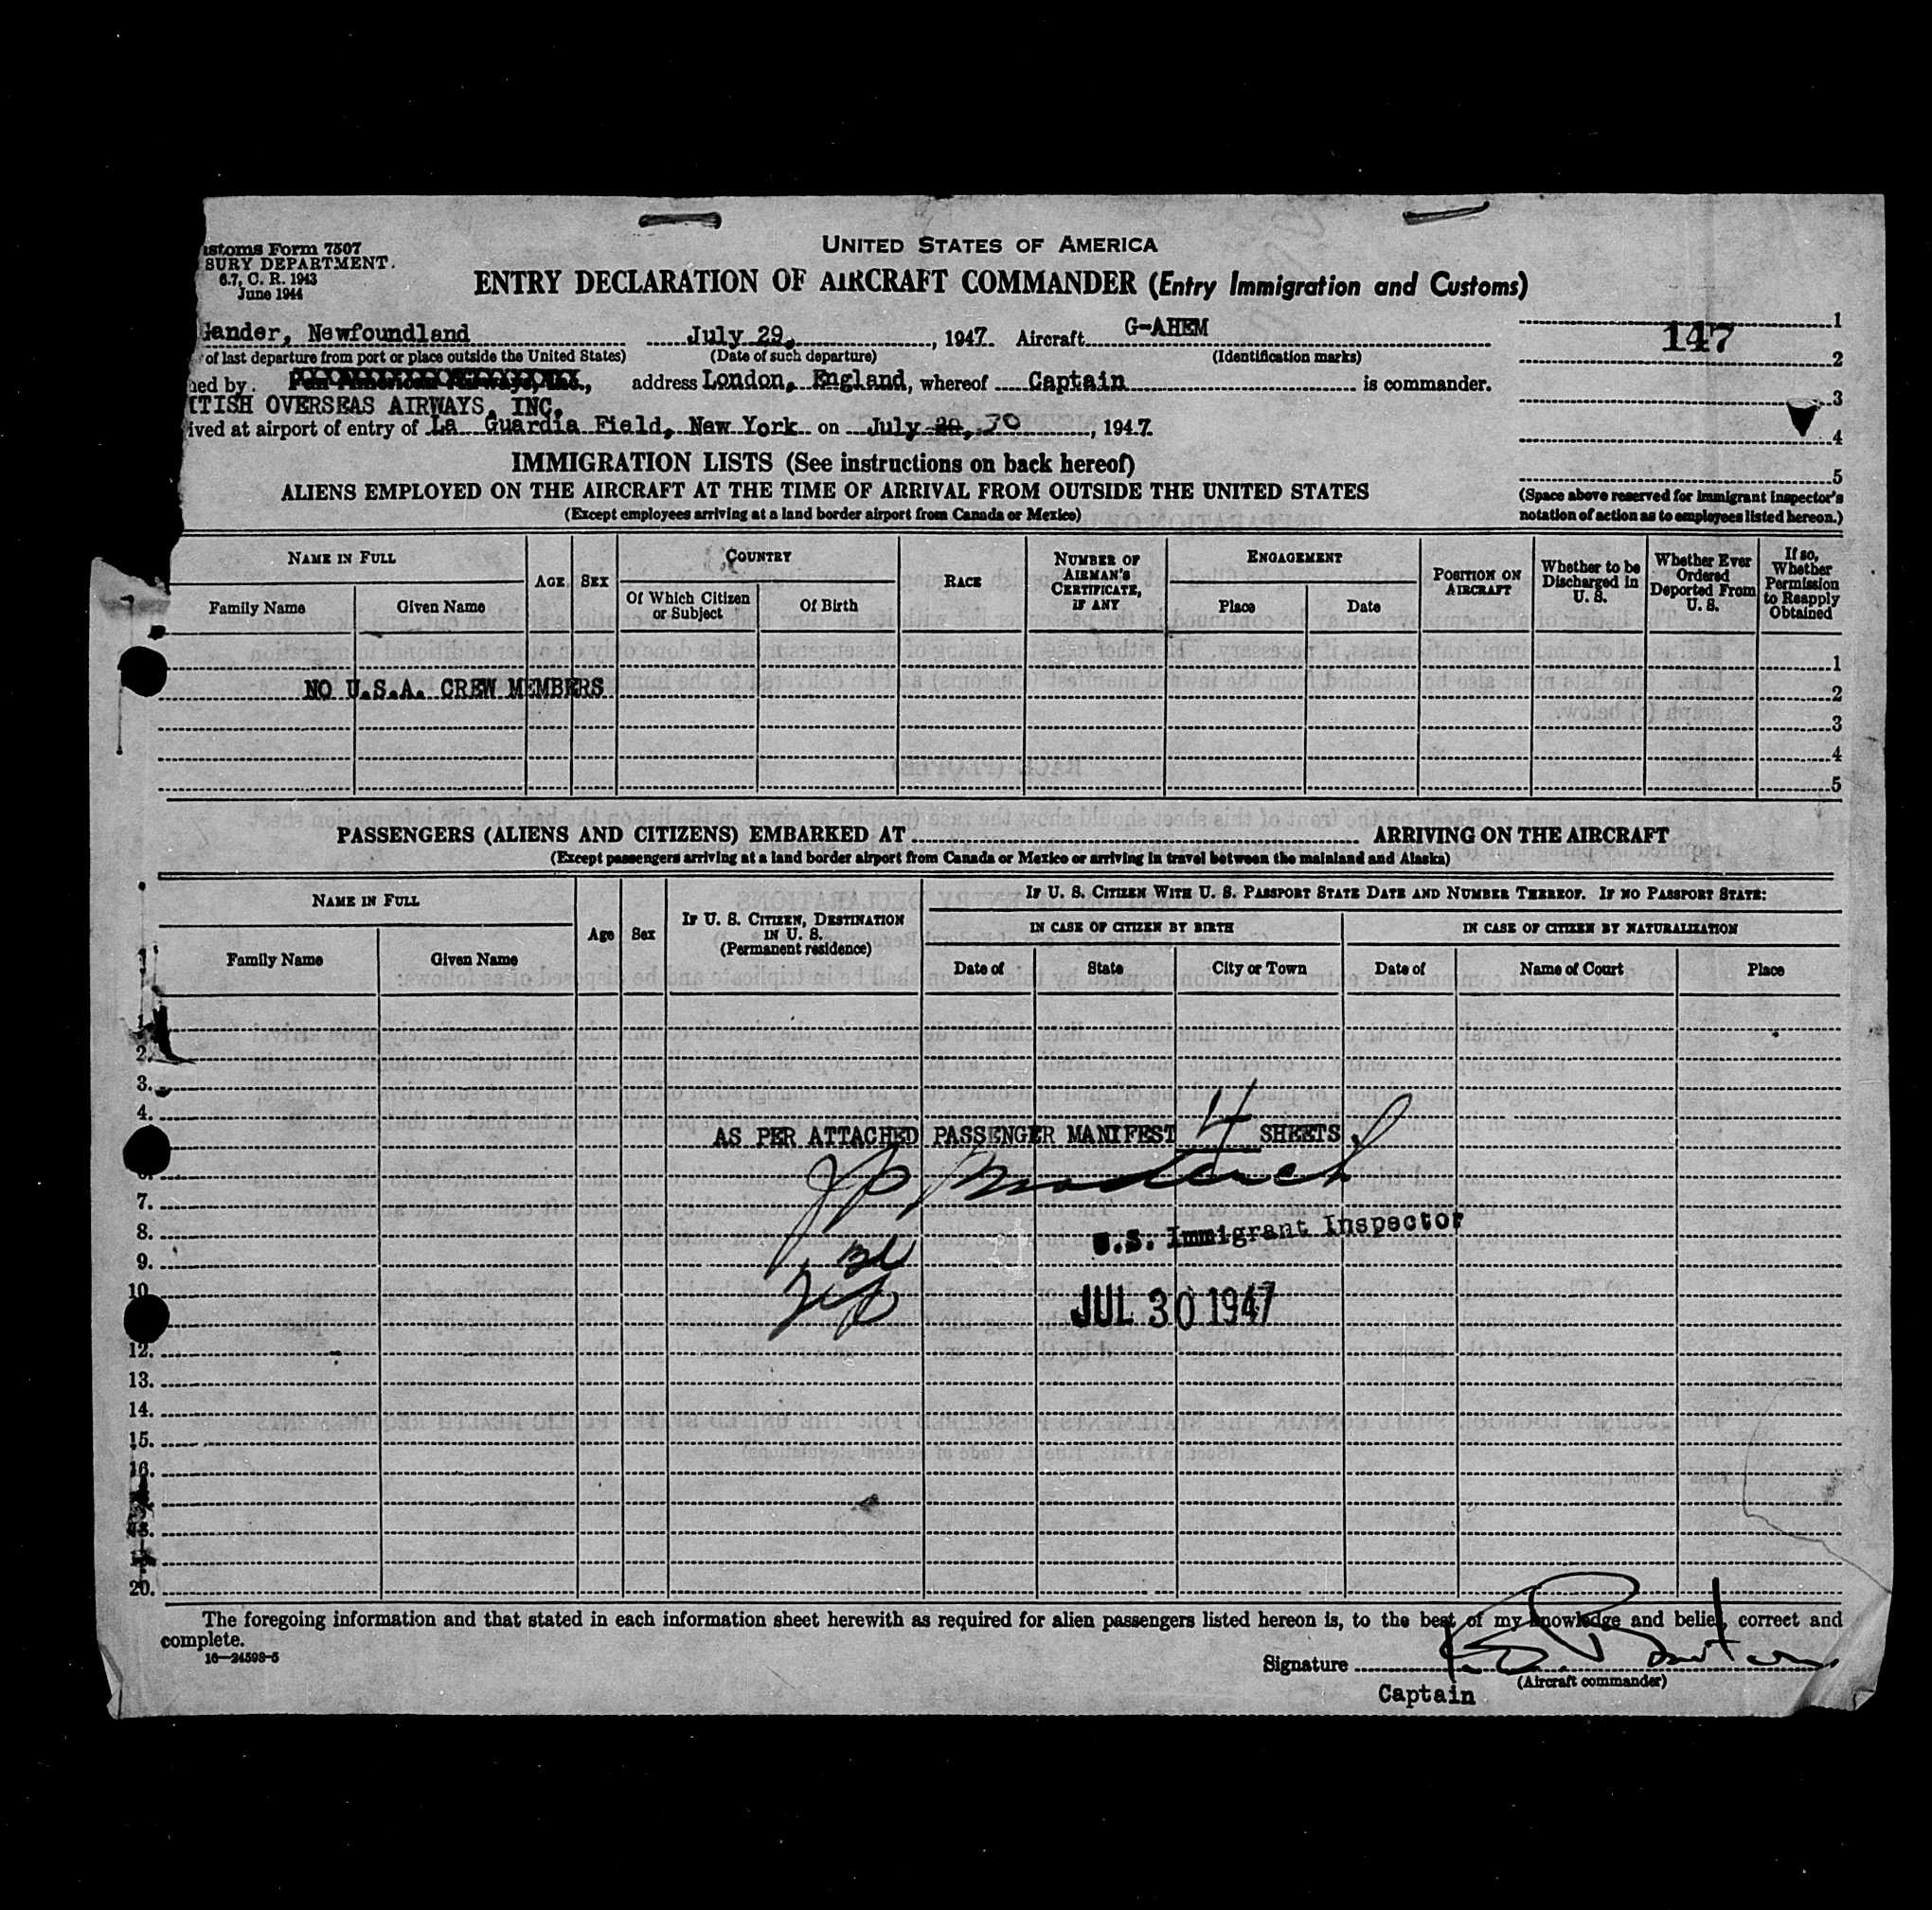 UNITED STATES OF AMERICA
istoms Form 7507
SURY DEPARTMENT.
6.7, C. R. 1943
June 1944
ENTRY DECLARATION OF AIRCRAFT COMMANDER (Entry Immigration and Customs)
Gander, Newfoundland July 29, , 1947. Aircraft G-AHEM
of last departure from port or place outside the United States) (Date of such departure) (Identification marks)
147
1
2
3
4
5
ned by Pan American Airways, Inc., address London, England, whereof Captain is commander.
ITISH OVERSEAS AIRWAYS, INC.
ived at airport of entry of La Guardia Field, New York on July 29, 30, 1947.
IMMIGRATION LISTS (See instructions on back hereof)
ALIENS EMPLOYED ON THE AIRCRAFT AT THE TIME OF ARRIVAL FROM OUTSIDE THE UNITED STATES
(Except employees arriving at a land border airport from Canada or Mexico)
(Space above reserved for immigrant inspector's
notation of action as to employees listed hereon.)
NAME IN FULL
Family Name Given Name
AGE SEX
COUNTRY
Of Which Citizen
or Subject
Of Birth
RACE
NUMBER OF
AIRMAN'S
CERTIFICATE,
IF ANY
ENGAGEMENT
Place Date
POSITION ON
AIRCRAFT
Whether to be
Discharged in
U. S.
Whether Ever
Ordered
Deported From
U. S.
If so,
Whether
Permission
to Reapply
Obtained
1
NO U.S.A. CREW MEMBERS 2
3
4
5
PASSENGERS (ALIENS AND CITIZENS) EMBARKED AT ARRIVING ON THE AIRCRAFT
(Except passengers arriving at a land border airport from Canada or Mexico or arriving in travel between the mainland and Alaska)
NAME IN FULL
Family Name Given Name
Age Sex
IF U. S. CITIZEN, DESTINATION
IN U. S.
(Permanent residence)
IF U. S. CITIZEN WITH U. S. PASSPORT STATE DATE AND NUMBER THEREOF. IF NO PASSPORT STATE:
IN CASE OF CITIZEN BY BIRTH IN CASE OF CITIZEN BY NATURALIZATION
Date of State City or Town Date of Name of Court Place
1.
2.
3.
4.
AS PER ATTACHED PASSENGER MANIFEST 4 SHEETS.
6.
7.
8.
U.S. Immigrant Inspector
9.
10.
JUL 30 1947
12.
13.
14.
15.
16.
18.
20.
The foregoing information and that stated in each information sheet herewith as required for alien passengers listed hereon is, to the best of my knowledge and belief, correct and
complete.
16—24598-5
Signature
(Aircraft commander)
Captain